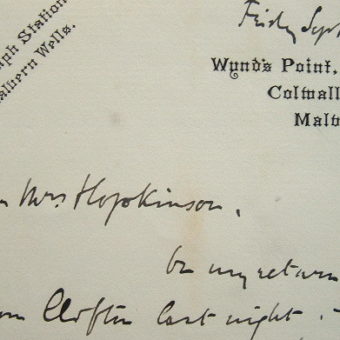 ph Station
alvern Wells.
Friday Sept
Wynd's Point,
Colwall
Malv
Mrs Hopkinson,
On my return
Clifton last night.